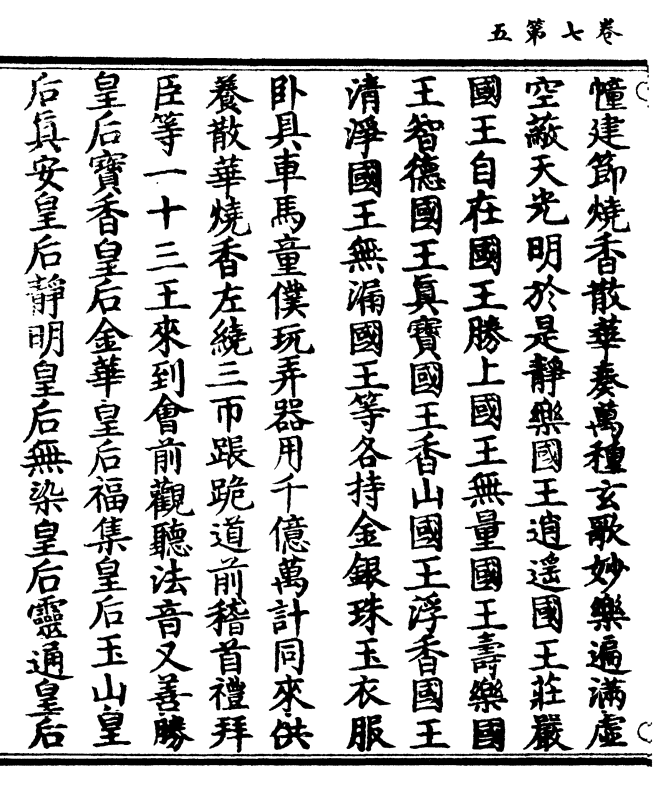 卷七第五
幢建節燒香散華奏萬種玄歌妙樂遍滿虛
空蔽天光明於是靜樂國王逍遥國王莊嚴
國王自在國王勝上國王無量國王壽樂國
王智德國王真寶國王香山國王浮香國王
清淨國王無漏國王等各持金銀珠玉衣服
卧具車馬童僕玩弄器用千億萬計同來供
養散華燒香左繞三帀踉跪道前稽首禮拜
臣等一十三王來到會前觀聽法音又善勝
皇后寶香皇后金華皇后福集皇后玉山皇
后真安皇后靜明皇后無染皇后靈通皇后